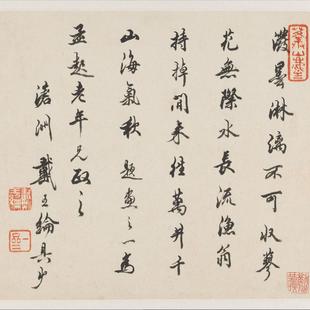 潑墨淋漓不可收蓼
花無際水長流漁翁
持棹間来往萬井千
山海氣秋 題畫之一為
孟起老年兄政之
滄洲戴王綸具艸